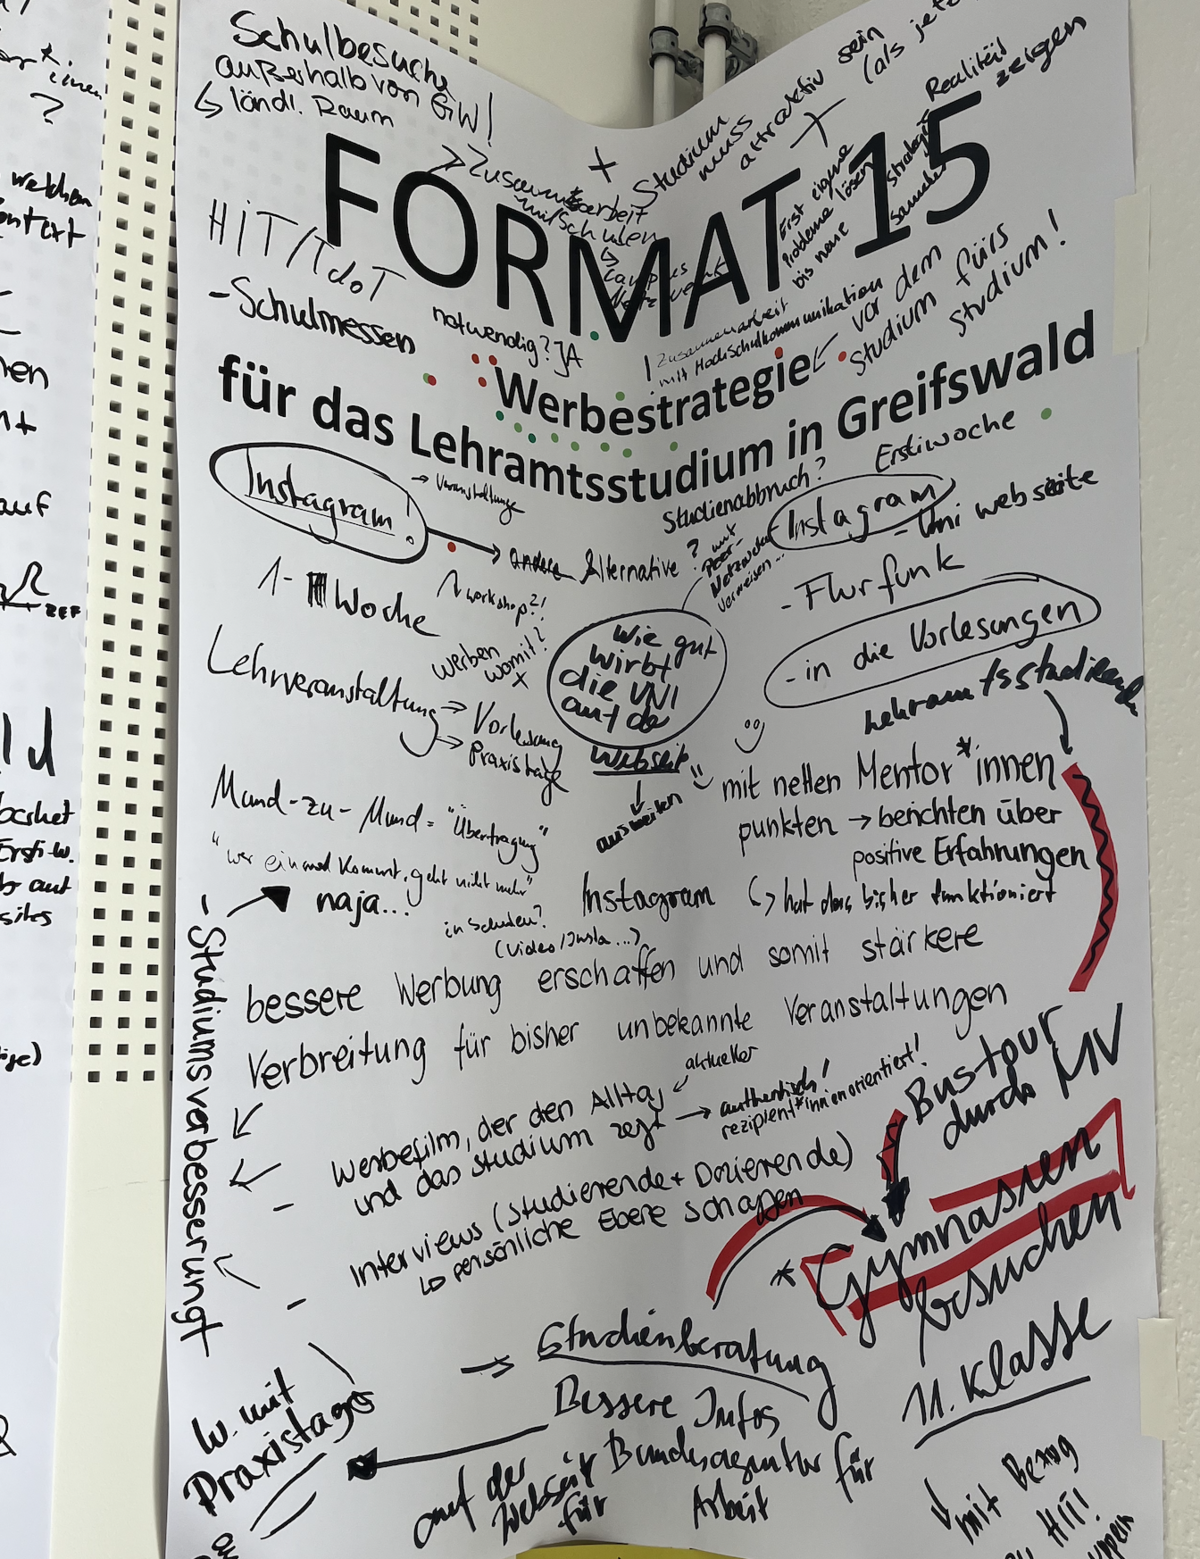 Schulbesuche
außerhalb von GW!
↳ ländl. Raum
+ Studium muss attraktiv sein (als jetzt
+
Realität zeigen
strategie
sammeln
Erst eigene
Probleme lösen
bis neue
→ Zusammenarbeit
mit Schulen
FORMAT 15
HIT/TdoT
- Schulmessen
notwendig? JA
! Zusammenarbeit
mit Hochschulkommunikation
← vor dem
Studium fürs
Studium!
Werbestrategie
für das Lehramtsstudium in Greifswald
Erstiwoche
Instagram!
→ Veranstaltungen
→ andere Alternative?
Studienabbruch?
mit
Peer-
Instagram
- Uni webseite
- Flurfunk
- in die Vorlesungen
1- Woche
workshop?!
werben
womit?
Lehrveranstaltung
→ Vorlesung
→ Praxistage
wie gut
wirbt
die UNI
auf der
Webseite
ausweiten
Lehramtsstudierende
mit netten Mentor*innen
punkten → berichten über
positive Erfahrungen
↳ hat das bisher funktioniert
Mund-zu-Mund = "Übertragung"
"wer einmal kommt, geht nicht mehr"
naja...
Instagram
in Schulen?
(Video/Insta...)
- Studiumsverbesserung
bessere Werbung erschaffen und somit stärkere
Verbreitung für bisher unbekannte Veranstaltungen
aktueller
- Werbefilm, der den Alltag
und das Studium zeigt → authentisch!
rezipient*innenorientiert!
- Interviews (Studierende + Dozierende)
↳ persönliche Ebene schaffen
Bustour
durch MV
* Gymnasien
besuchen
11. Klasse
→ Studienberatung
Bessere Infos
auf der
Webseite
für
Bundesagentur für
Arbeit
W. mit
Praxistage
mit Bezug
HIT!
welchem
ontext
auf
Ersti-w.
auf